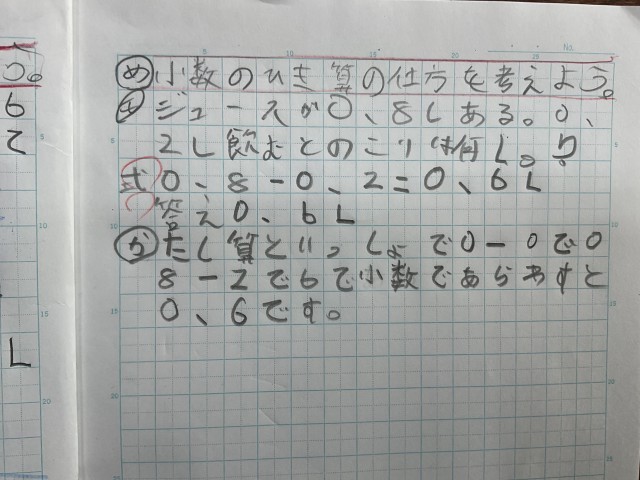 う。
9
て
L
め 小数のひき算の仕方を考えよう。
も ジュースが0、8Lある。0、
2L飲むとのこりは何L。?
式 0、8-0、2=0、6L
答え0、6L
が たし算といっしょで0-0で0
8-2で6で小数であらわすと
0、6です。